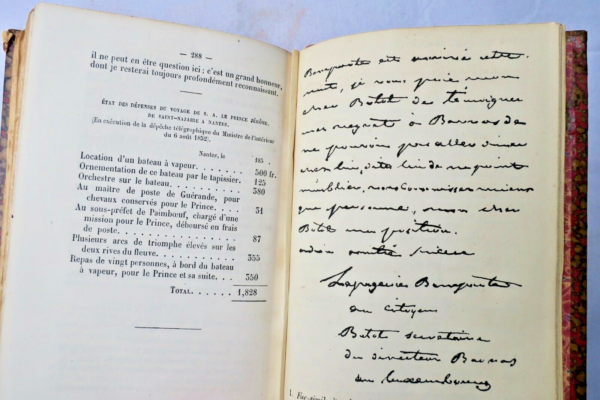 — 288 —
il ne peut en être question ici ; c'est un grand honneur,
dont je resterai toujours profondément reconnaissant.
ÉTAT DES DÉPENSES DU VOYAGE DE S. A. LE PRINCE JÉRÔME,
DE SAINT-NAZAIRE A NANTES,
(En exécution de la dépêche télégraphique du Ministre de l'intérieur
du 6 août 1852).
Nantes, le 185 .
Location d'un bateau à vapeur. . . . . . . . 500 fr.
Ornementation de ce bateau par le tapissier. 125
Orchestre sur le bateau. . . . . . . . . . . 380
Au maître de poste de Guérande, pour
chevaux conservés pour le Prince. . . . . 31
Au sous-préfet de Paimbœuf, chargé d'une
mission pour le Prince, déboursé en frais
de poste. . . . . . . . . . . . . . . . . 87
Plusieurs arcs de triomphe élevés sur les
deux rives du fleuve. . . . . . . . . . . 355
Repas de vingt personnes, à bord du bateau
à vapeur, pour le Prince et sa suite. . . 350
TOTAL. . . . . . . 1,828
Bonaparte est arrivé cette
nuit, je vous prie mon
cher Botot de témoigner
mes regrets à Barras de
ne pouvoir pas aller diner
chez lui, dites lui de ne point
m'oublier, vous connaissez mieux
que personne, mon cher
Botot ma position.
adieu amitié sincère
Lapagerie Bonaparte
au citoyen
Botot secretaire
du directeur Barras
au luxembourg
1. Fac-simile